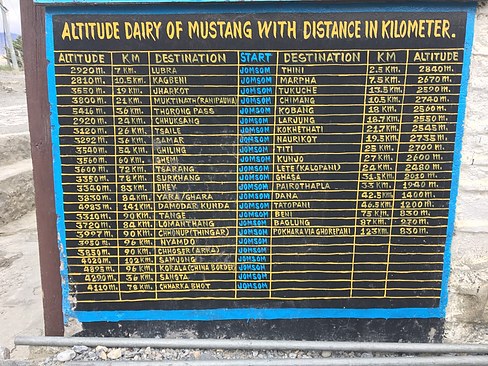 ALTITUDE DAIRY OF MUSTANG WITH DISTANCE IN KILOMETER.
ALTITUDE KM DESTINATION START DESTINATION KM ALTITUDE
2920m. 7 KM. LUBRA JOMSOM THINI 2.5 KM. 2840m.
2810m. 10.5 KM. KAGBENI JOMSOM MARPHA 7.5 KM. 2670m.
3550m. 19 KM. JHARKOT JOMSOM TUKUCHE 13.5 KM. 2590m.
3800m. 21 KM. MUKTINATH(RANIPAUWA) JOMSOM CHIMANG 10.5 KM. 2740m.
5416m. 36 KM. THORONG PASS JOMSOM KOBANG 18 KM. 2560m.
2920m. 24 KM. CHHUKSANG JOMSOM LARJUNG 18.7 KM. 2550m.
3120m. 26 KM. TSAILE JOMSOM KOKHETHATI 21.7 KM. 2545m.
3292m. 36 KM. SAMAR JOMSOM NAURIKOT 19.5 KM. 2735m.
3540m. 54 KM. GHILING JOMSOM TITI 25 KM. 2700m.
3560m. 60 KM. GHEMI JOMSOM KUNJO 27 KM. 2600m.
3600m. 72 KM. TSARANG JOMSOM LETE (KALOPANI) 24 KM. 2480m.
3350m. 78 KM. SURKHANG JOMSOM GHASA 31.5 KM. 2010m.
3340m. 83 KM. DHEY JOMSOM PAIROTHAPLA 33 KM. 1940m.
3830m. 84 KM. YARA/GHARA JOMSOM DANA 42.5 KM. 1400m.
4985m. 141 KM. DAMODAR KUNDA JOMSOM TATOPANI 46.5 KM. 1200m.
3310m. 90 KM. TANGE JOMSOM BENI 75 KM. 830m.
3720m. 84 KM. LOMANTHANG JOMSOM BAGLUNG 87 KM. 970m.
3997m. 90 KM. CHHONUP(THINGAR) JOMSOM POKHARA VIA GHOREPANI 123 KM. 830m.
3950m. 96 KM. NYAMDO JOMSOM
3850m. 90 KM. CHHOSER(ARKA) JOMSOM
4020m. 102 KM. SAMJONG JOMSOM
4895m. 96 KM. KORALA(CHINA BORDER) JOMSOM
4290m. 36 KM. SANGTA JOMSOM
4110m. 78 KM. CHHARKA BHOT JOMSOM